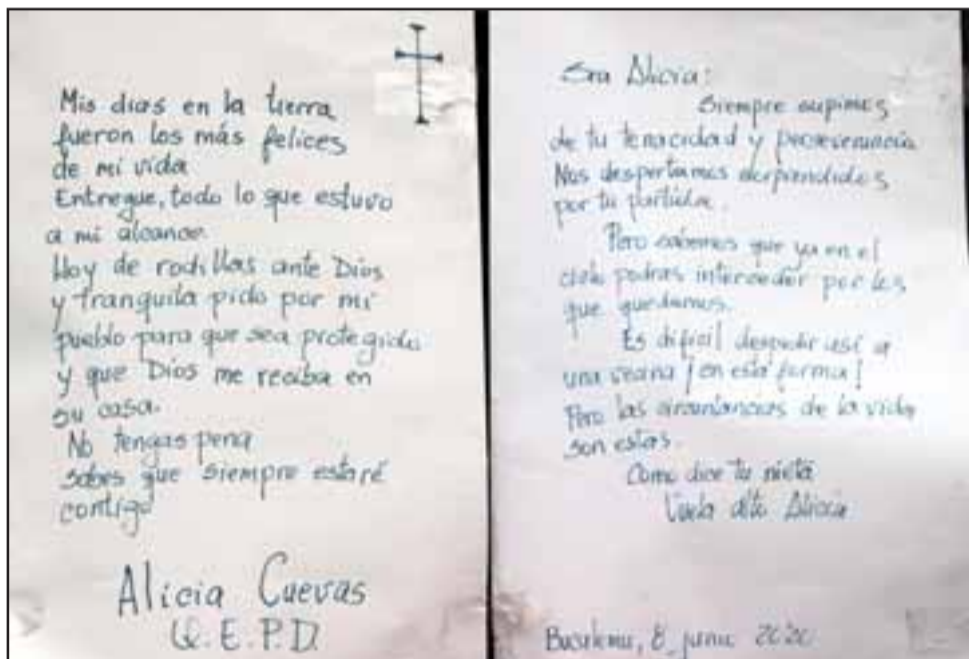 Mis dias en la tierra
fueron los más felices
de mi vida
Entregue, todo lo que estuvo
a mi alcance.
Hoy de rodillas ante Dios
y tranquila pido por mi
pueblo para que sea protegido
y que Dios me reciba en
su casa.
No tengas pena
sabes que siempre estaré
contigo
Alicia Cuevas
Q.E.P.D.
Sra Alicia:
Siempre supimos
de tu tenacidad y perseverancia
Nos despertamos sorprendidos
por tu partida.
Pero sabemos que ya en el
cielo podras interceder por los
que quedamos.
Es dificil despedir asi a
una vecina ¡en esta forma!
Pero las circuntancias de la vida
son estas.
Como dice tu nieta
Vuela alto Alicia
Bucalemu, 8 junio 2020